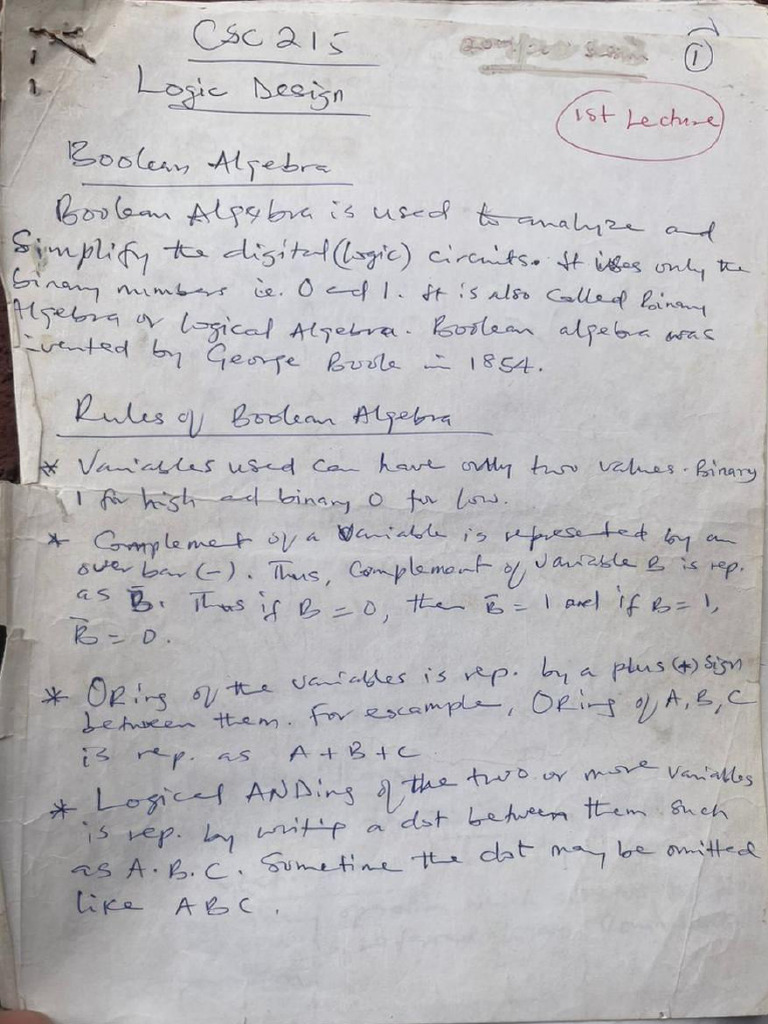 CSC 215
①
Logic Design
1st Lecture
Boolean Algebra
Boolean Algebra is used to analyze and
Simplify the digital (logic) circuits. It uses only the
binary numbers ie. 0 and 1. It is also called Binary
Algebra or logical Algebra. Boolean algebra was
invented by George Boole in 1854.
Rules of Boolean Algebra
* Variables used can have only two values. Binary
1 for high and binary 0 for low.
* Complement of a variable is represented by an
over bar (-). Thus, complement of variable B is rep.
as B̅. Thus if B = 0, then B̅ = 1 and if B = 1,
B̅ = 0.
* ORing of the variables is rep. by a plus (+) sign
between them. For example, ORing of A, B, C
is rep. as A + B + C
* Logical ANDing of the two or more variables
is rep. by writing a dot between them such
as A. B. C. Sometime the dot may be omitted
like ABC.